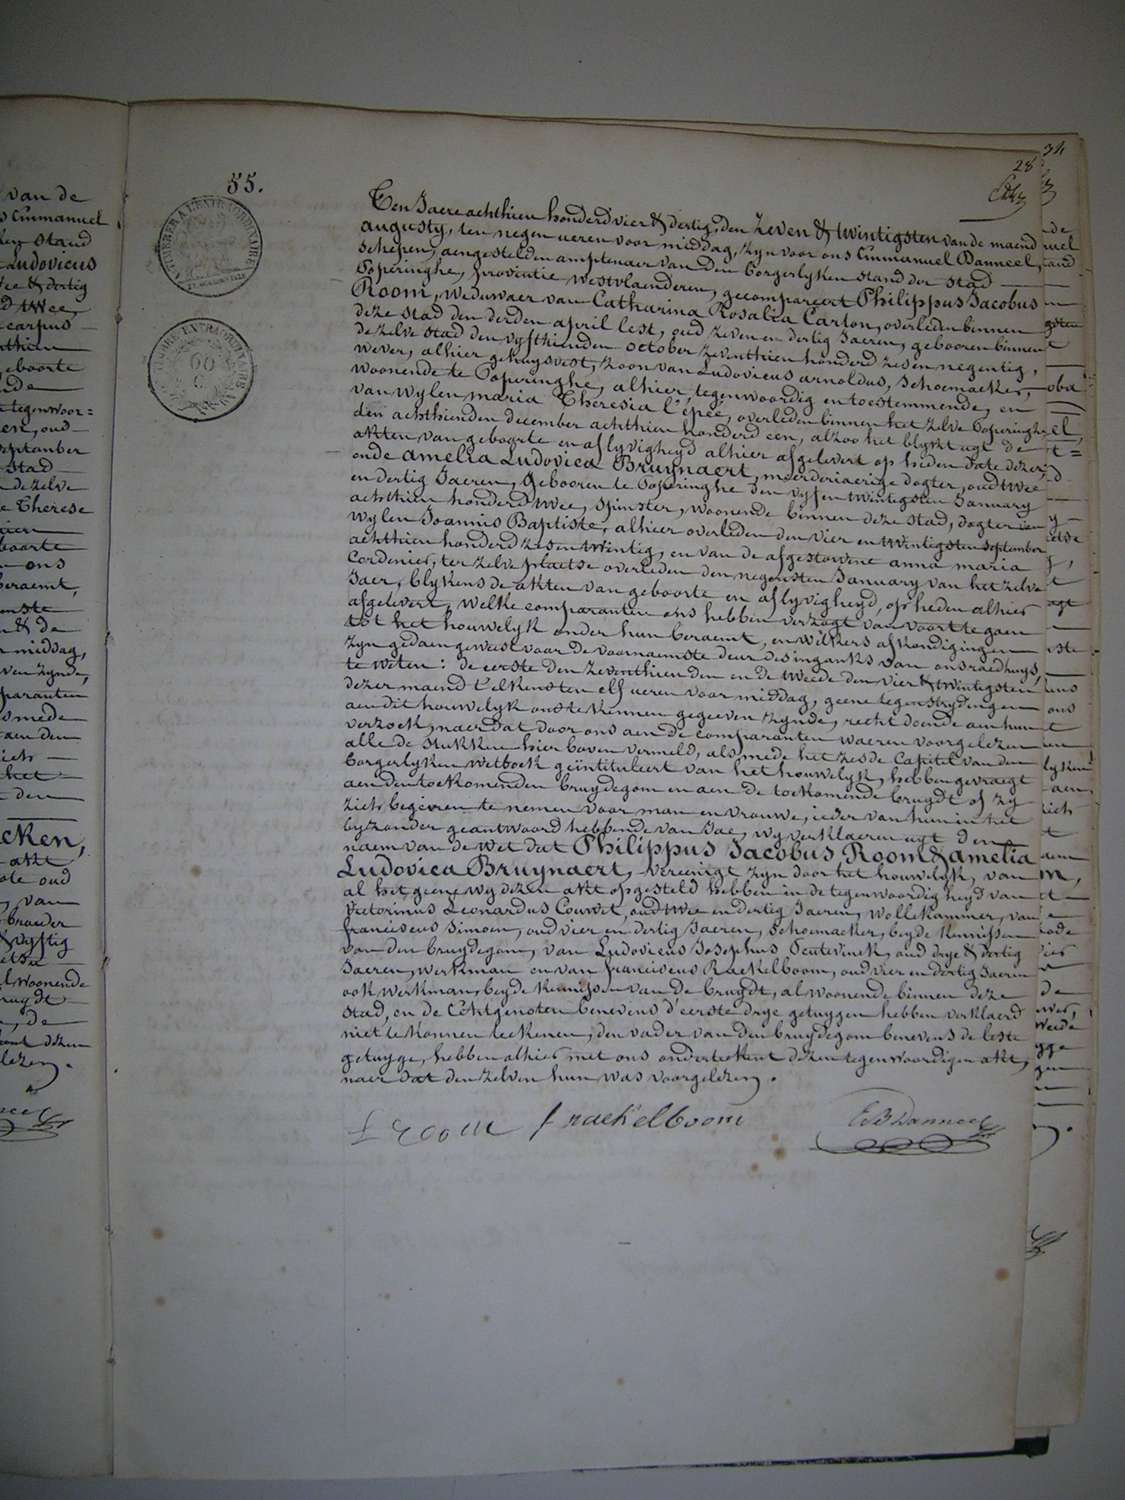 28
55.
Ten Jaere achthien honderd vier & dertig, den zeven & twintigsten van de maend
augusty, ten negen ueren voor middag, zyn voor ons Emmanuel Danneel,
schepen, aengestelden amptenaer van den Borgerlyken stand der stad
Poperinghe, provintie westvlaenderen, gecompareert Philippus Jacobus
Room, weduwaer van Catharina Rosalia Carton, overleden binnen
deze stad den derden april lest, oud zeven en dertig Jaeren, gebooren binnen
de zelve stad den vyfthienden october zeventhien honderd zes en negentig,
wever, alhier gehuysvest, zoon van Ludovicus arnoldus, schoemaeker,
woonende te Poperinghe, alhier tegenwoordig en toestemmende, en
van wylen maria Theresia l'épée, overleden binnen het zelve Poperinghe
den achthienden december achthien honderd een, alzoo het blykt uyt de
akten van geboorte en aflyvigheyd alhier afgelevert op heden date dezer,
ende amelia Ludovica Bruynaert, meerderiaerige dogter, oud twee
en dertig Jaeren, gebooren te Poperinghe den vyf en twintigsten January
achthien honderd twee, spinster, woonende binnen deze stad, dogter van
wylen Joannis Baptiste, alhier overleden den vier en twintigsten september
achthien honderd zes en twintig, en van de afgestorvene anna maria
Cordenier, ter zelve plaetse overleden den negensten January van het zelve
Jaer, blykens de akten van geboorte en aflyvigheyd, op heden alhier
afgelevert, welke comparanten ons hebben verzogt van voort te gaen
tot het houwelyk onder hun beraemt, en wilkers afkondigingen
zyn gedaen geweest voor de voornaemste deur des ingangs van ons raedhuys,
te weten: de eerste den zeventhienden en de tweede den vier & twintigsten
dezer maend t'elkens ten elf ueren voor middag, geene tegenstrydingen
aen dit houwelyk ons te kennen gegeeven zynde, recht doende aen hun
verzoek, naer dat door ons aen de comparanten waeren voorgelezen
alle de stukken hier boven vermeld, als mede het zesde Capitel van den
Borgerlyken wetboek geïntituleert van het houwelyk, hebben gevraegt
aen den toekomenden bruydegom en aen de toekomende bruydt of zy
zich begeeren te nemen voor man en vrouwe, ieder van hun in het
byzonder geantwoord hebbende van Jae, wy verklaeren uyt den
naem van de wet dat Philippus Jacobus Room & amelia
Ludovica Bruynaert, vereenigt zyn door het houwelyk, van
al het geene wy dezen akt opgesteld hebben in de tegenwoordigheyd van
Victorinus Leonardus Couwet, oud twee en dertig Jaeren, wollekammer, van
franciscus Simoen, oud vier en dertig Jaeren, schoemaeker, beyde kennissen
van den bruydegom, van Ludovicus Josephus Deutevinck, oud drye & dertig
Jaeren, werkman en van franciscus Raekelboom, oud vier en dertig Jaeren
ook werkman, beyde kennissen van de bruydt, al woonende binnen deze
stad, en de Echtgenoten benevens d'eerste drye getuygen hebben verklaerd
niet te konnen teekenen, den vader van den bruydegom benevens de leste
getuyge, hebben alhier met ons onderteekent dezen tegenwoordigen akt,
naer dat den zelven hun was voorgelezen.
L room f raekelboom EB Danneel